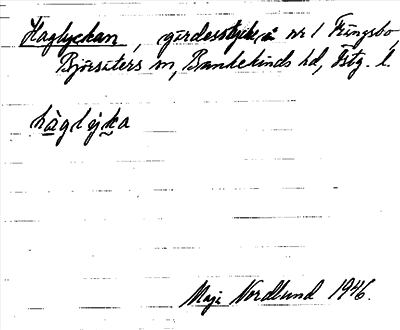 Haglyckan, gärdesstycke å nr 1 Fängsbo,
Björsäters sn, Bankekinds hd, Östg. l.
håglyka
Maj Nordlund 1946.